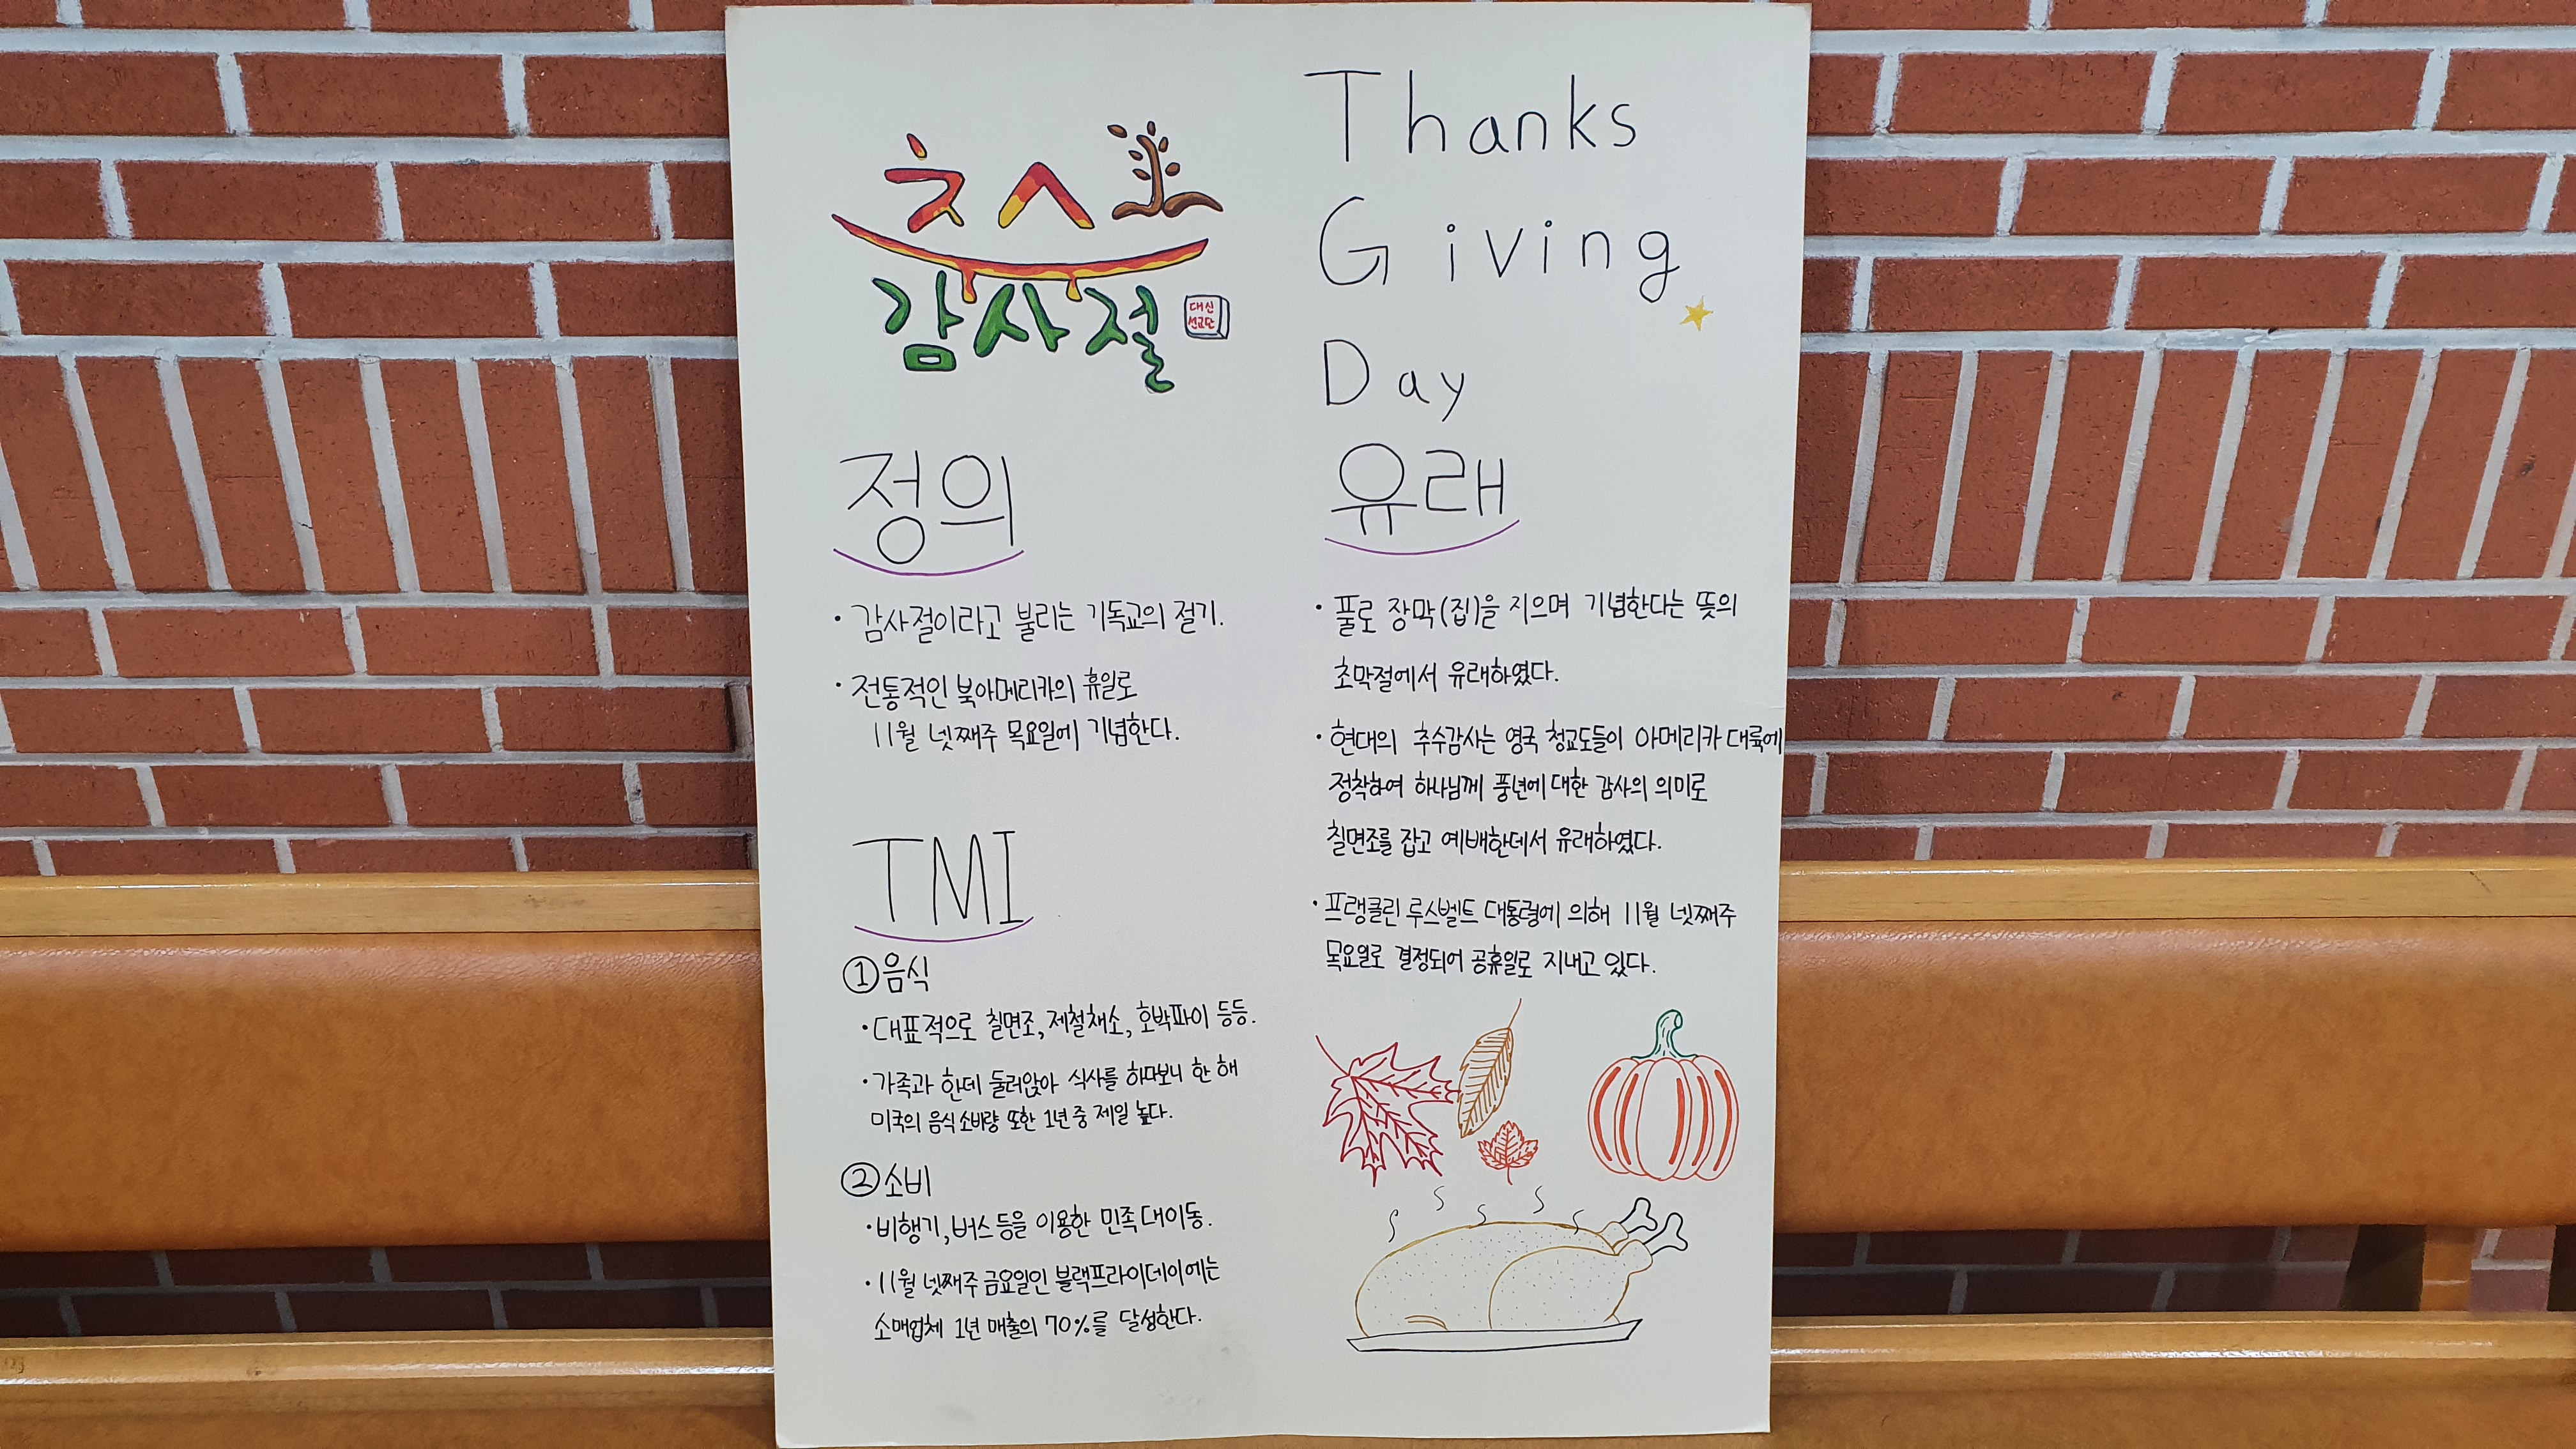 추수
감사절
대신
선교단
Thanks
Giving
Day
정의
· 감사절이라고 불리는 기독교의 절기.
· 전통적인 북아메리카의 휴일로
11월 넷째주 목요일에 기념한다.
TMI
① 음식
· 대표적으로 칠면조, 제철채소, 호박파이 등등.
· 가족과 한데 둘러앉아 식사를 하다보니 한 해
미국의 음식 소비량 또한 1년 중 제일 높다.
② 소비
· 비행기, 버스 등을 이용한 민족 대이동.
· 11월 넷째주 금요일인 블랙프라이데이에는
소매업체 1년 매출의 70%를 달성한다.
유래
· 풀로 장막(집)을 지으며 기념한다는 뜻의
초막절에서 유래하였다.
· 현대의 추수감사는 영국 청교도들이 아메리카 대륙에
정착하여 하나님께 풍년에 대한 감사의 의미로
칠면조를 잡고 예배한데서 유래하였다.
· 프랭클린 루스벨트 대통령에 의해 11월 넷째주
목요일로 결정되어 공휴일로 지내고 있다.